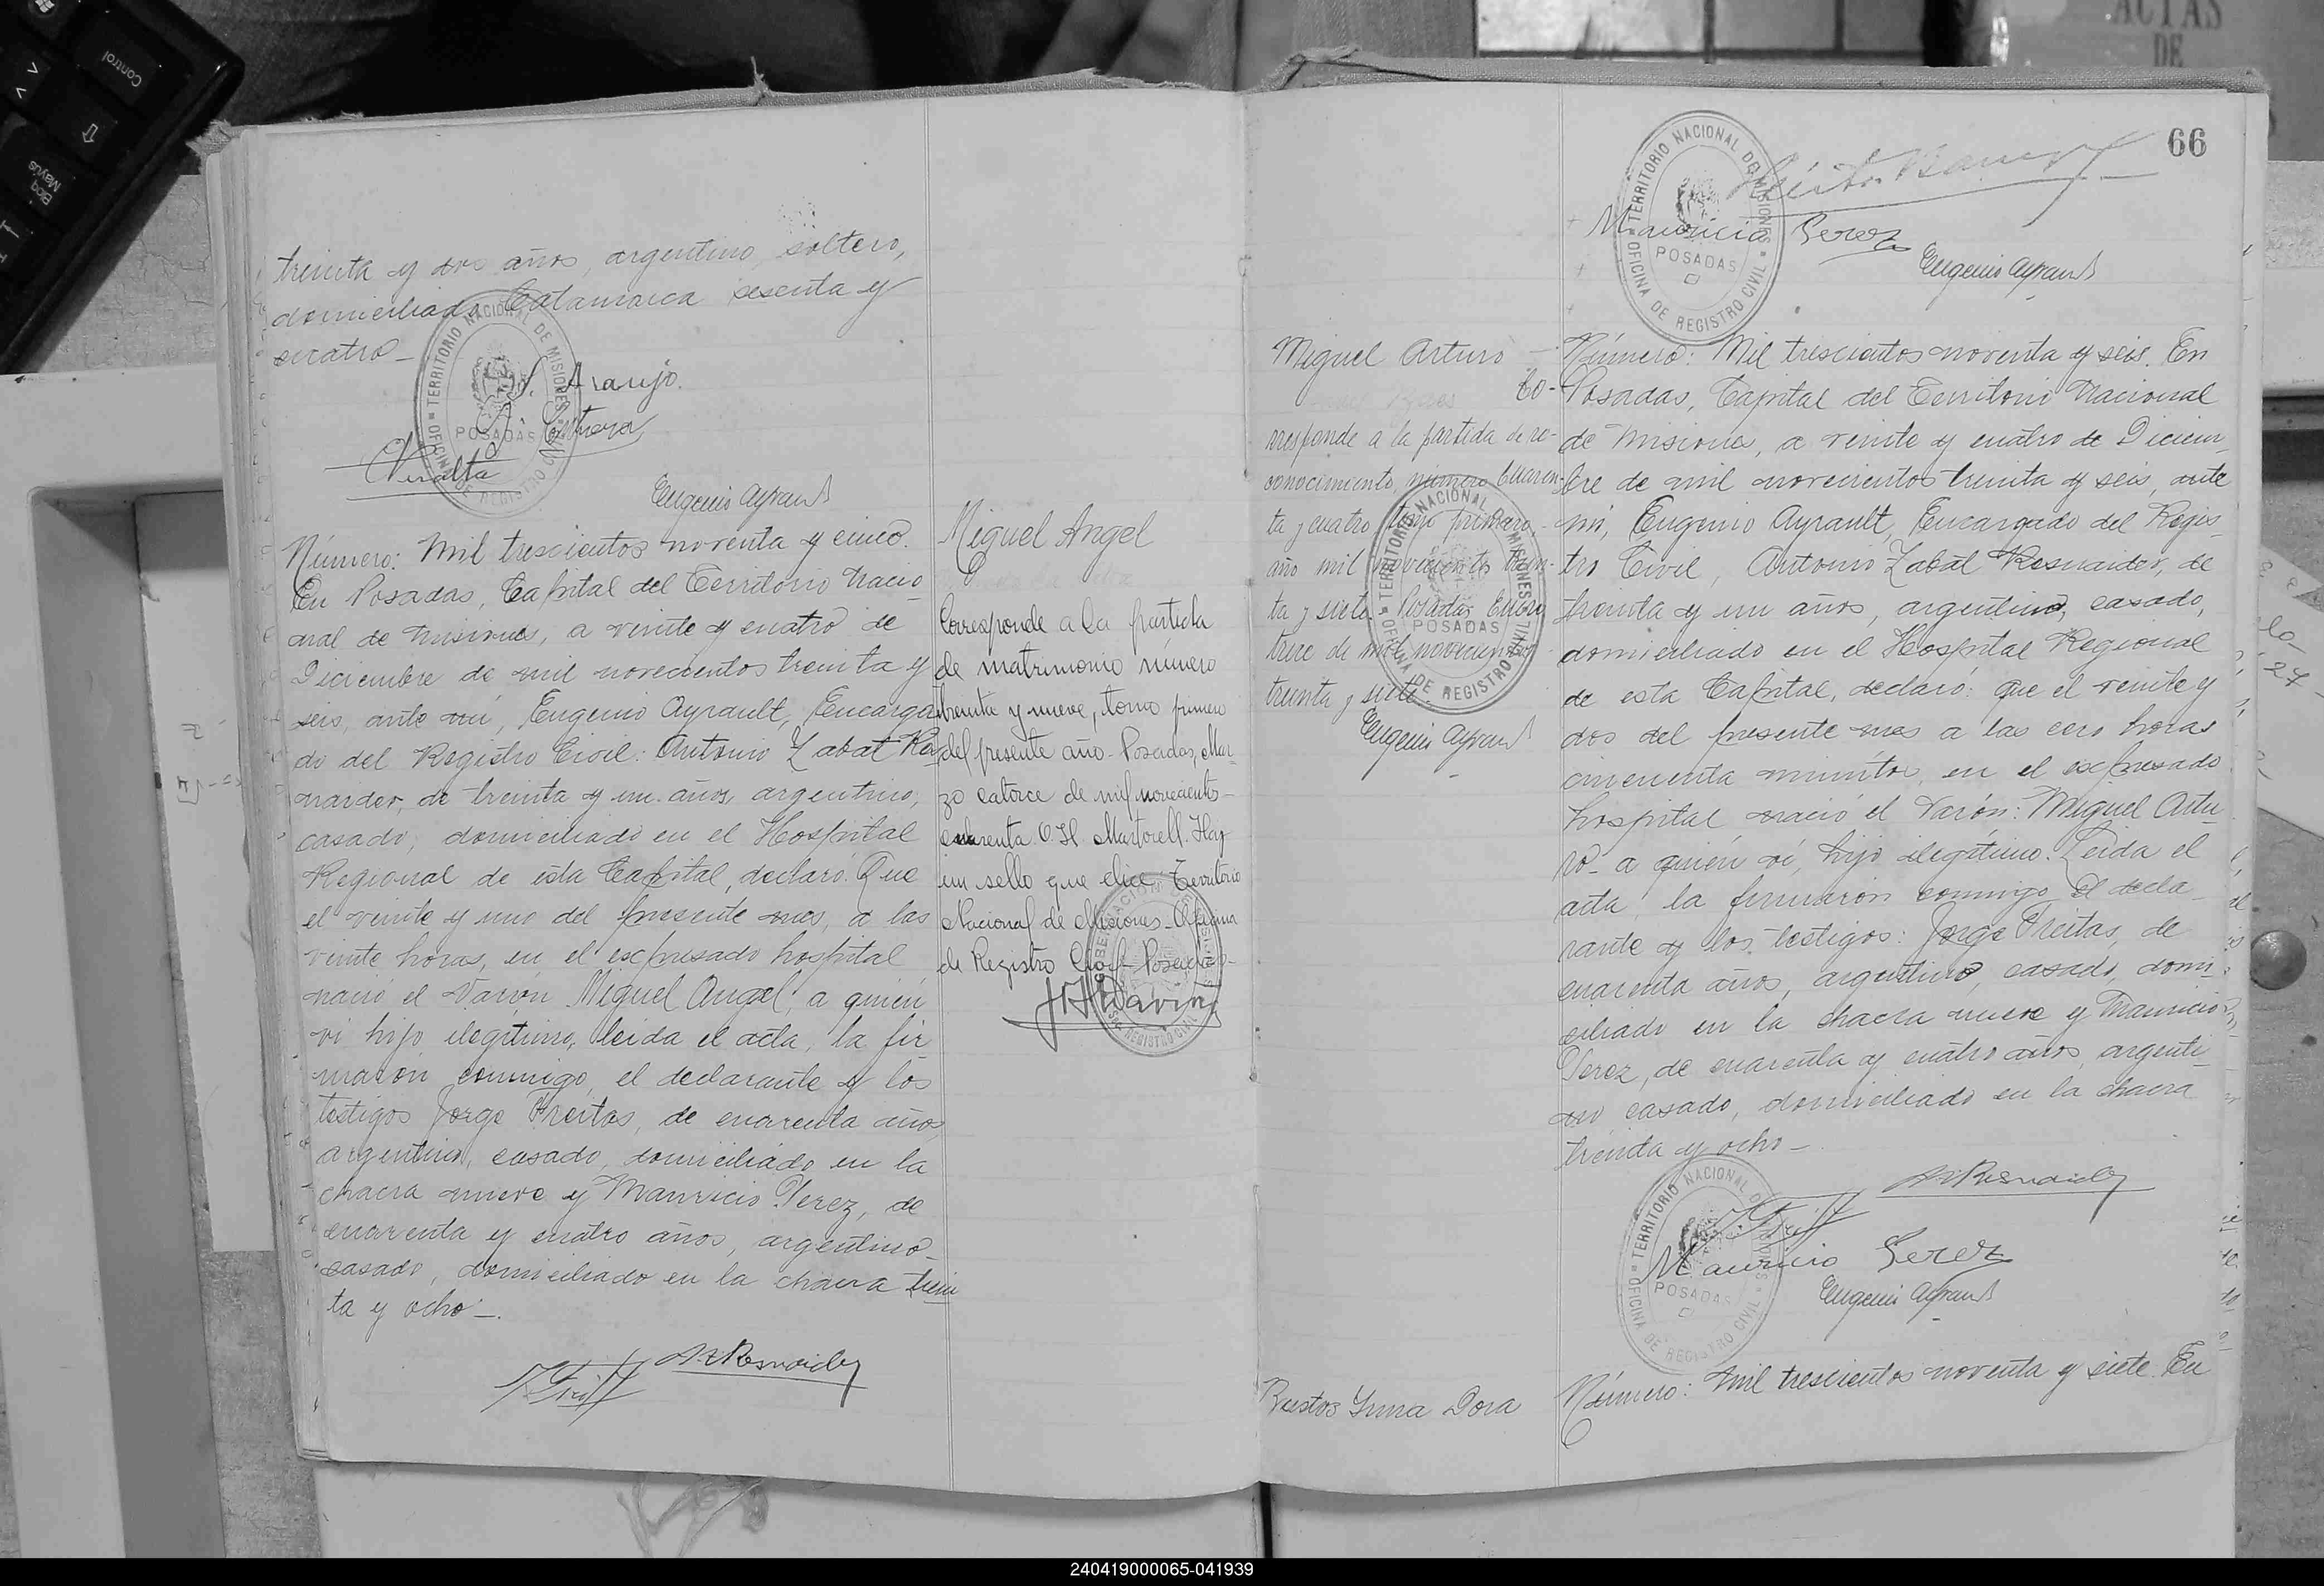 treinta y dos años, argentino, soltero,
domiciliado Catamarca sesenta y
cuatro—
J. Araujo.
Peralta
Eugenio Ayrault
Número: Mil trescientos noventa y cinco.
En Posadas, Capital del Territorio Nacio
nal de Misiones, a veinte y cuatro de
Diciembre de mil novecientos treinta y
seis, ante mí, Eugenio Ayrault, Encarga
do del Registro Civil: Antonio Zabal Res
naider, de treinta y un años, argentino,
casado, domiciliado en el Hospital
Regional de esta Capital, declaró: Que
el veinte y uno del presente mes, a las
veinte horas, en el expresado hospital
nació el Varón Miguel Angel, a quién
ví hijo ilegítimo, leida el acta, la fir
maron conmigo, el declarante y los
testigos Jorge Freitas, de cuarenta años,
argentino, casado, domiciliado en la
chacra nueve y Mauricio Perez, de
cuarenta y cuatro años, argentino
casado, domiciliado en la chacra trein
ta y ocho—.
Miguel Angel
Corresponde a la partida
de matrimonio número
treinta y nueve, tomo primero
del presente año- Posadas, Mar
zo catorce de mil novecientos-
cuarenta. O.H. Martorell. Hay
un sello que dice: Territorio
Nacional de Misiones- Oficina
de Registro Civil- Posadas-
66
TERRITORIO NACIONAL DE MISIONES
POSADAS
OFICINA DE REGISTRO CIVIL
Mauricio Perez
Eugenio Ayrault
Miguel Arturo
Co-
rresponde a la partida de re-
conocimiento, número Cuaren-
ta y cuatro tomo primero,
año mil novecientos trein-
ta y siete. Posadas Enero
trece de mil novecientos
treinta y siete.
Eugenio Ayrault
Número: Mil trescientos noventa y seis. En
Posadas, Capital del Territorio Nacional
de Misiones, a veinte y cuatro de Diciem
bre de mil novecientos treinta y seis, ante
mí, Eugenio Ayrault, Encargado del Regis
tro Civil, Antonio Zabal Resnaider, de
treinta y un años, argentino, casado,
domiciliado en el Hospital Regional
de esta Capital, declaró: que el veinte y
dos del presente mes a las cero horas
cincuenta minutos, en el expresado
hospital nació el Varón: Miguel Artu
ro- a quién ví, hijo ilegítimo. Leida el
acta, la firmaron conmigo, el decla
rante y los testigos: Jorge Freitas, de
cuarenta años, argentino, casado, domi
ciliado en la chacra nueve y Mauricio
Perez, de cuarenta y cuatro años, argenti
no, casado, domiciliado en la chacra
treinta y ocho—
Mauricio Perez
Eugenio Ayrault
Bustos Irma Dora
Número: Mil trescientos noventa y siete. En
240419000065-041939